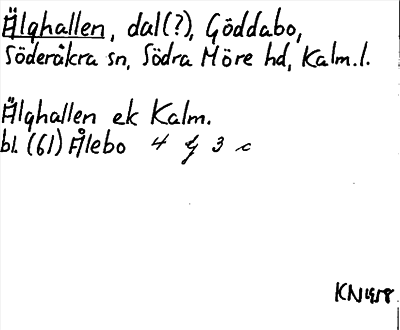 Älghallen, dal(?), Göddabo,
Söderåkra sn, Södra Möre hd, Kalm.l.
Älghallen ek Kalm.
bl. (61) Ålebo 4 g 3 c